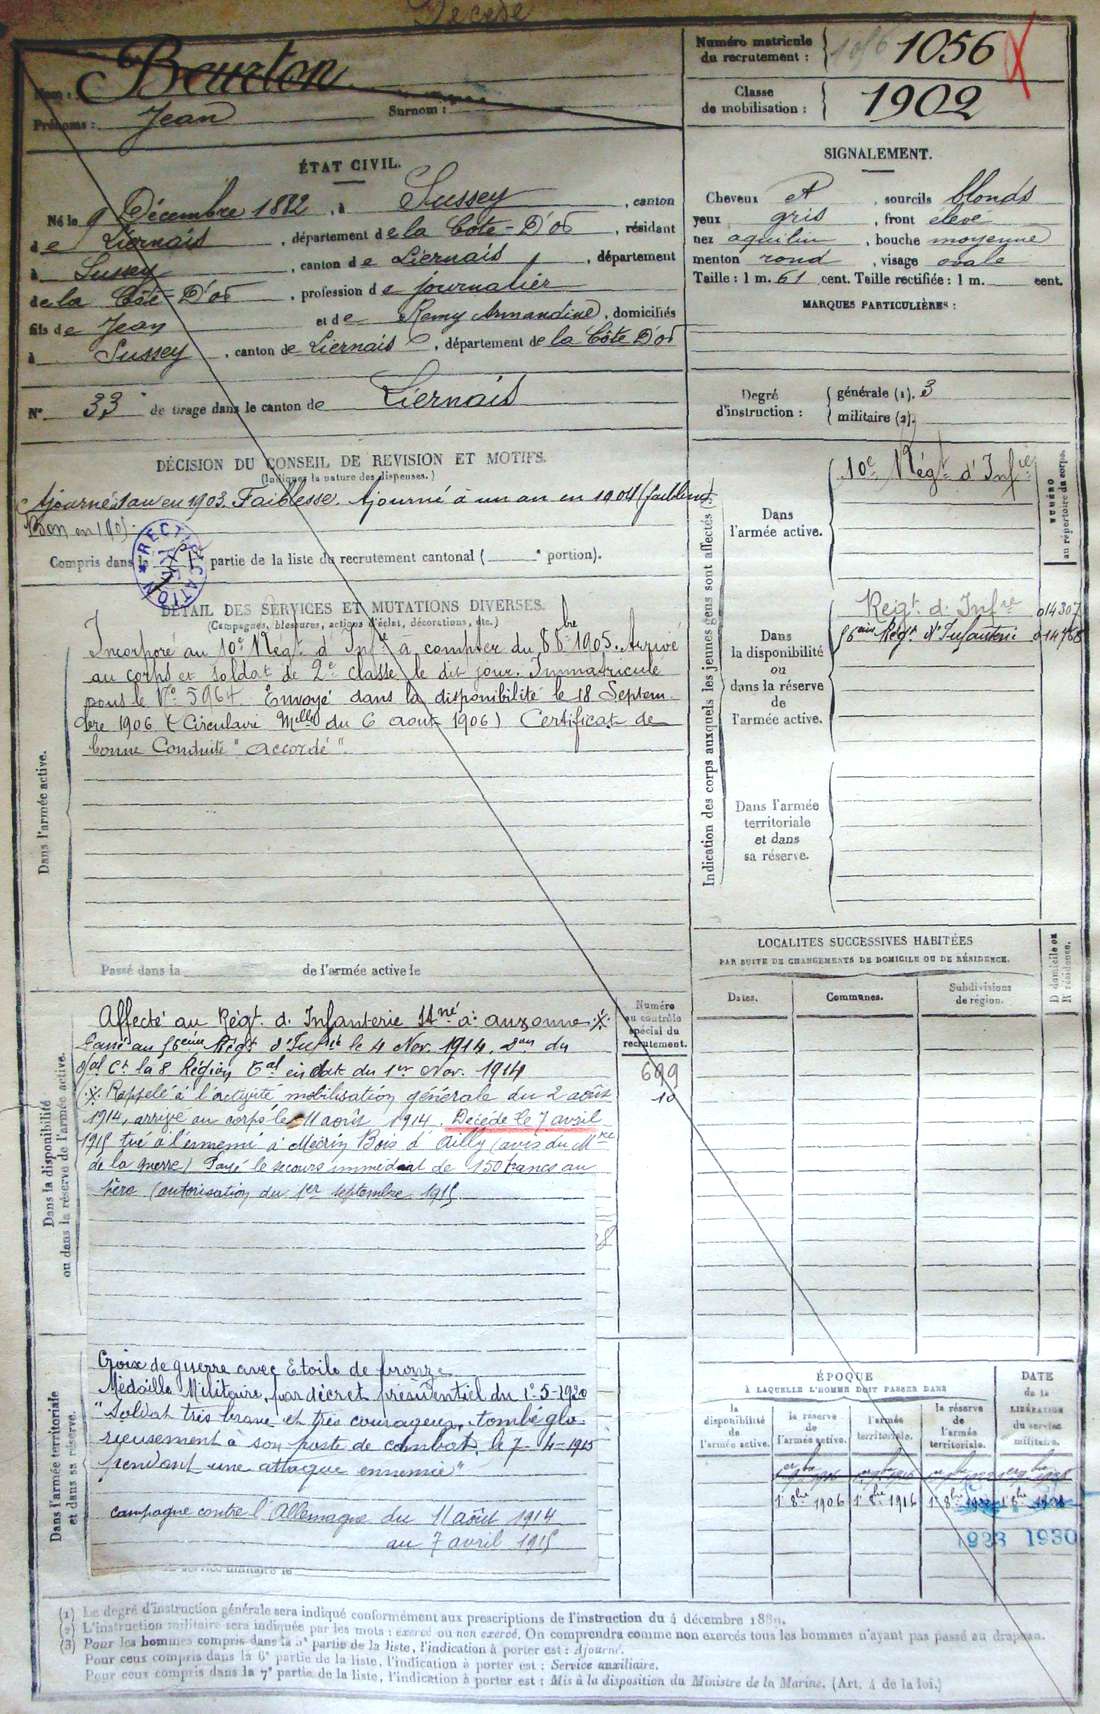 Décédé
Nom : Beurton
Prénoms : Jean Surnom :
Numéro matricule du recrutement : 1056 1056
Classe de mobilisation : 1902
ÉTAT CIVIL.
Né le 9 Décembre 1882, à Sussey, canton
de Liernais, département de la Côte-D'or, résidant
à Sussey, canton de Liernais, département
de la Côte D'or, profession de journalier
fils de Jean et de Remy Armandine, domiciliés
à Sussey, canton de Liernais, département de la Côte D'or
N° 33 de tirage dans le canton de Liernais
SIGNALEMENT.
Cheveux et, sourcils blonds
yeux gris, front élevé
nez aquilin, bouche moyenne
menton rond, visage ovale
Taille : 1 m. 61 cent. Taille rectifiée : 1 m. cent.
MARQUES PARTICULIÈRES :
Degré d'instruction : générale (1). 3
militaire (2).
DÉCISION DU CONSEIL DE REVISION ET MOTIFS.
(Indiquer la nature des dispenses.)
Ajourné à 1 an en 1903. Faiblesse. Ajourné à un an en 1904 (faiblesse).
Bon en 1905.
Compris dans la partie de la liste du recrutement cantonal ( ° portion).
RECTIFICATION
DÉTAIL DES SERVICES ET MUTATIONS DIVERSES.
(Campagnes, blessures, actions d'éclat, décorations, etc.)
Dans l'armée active.
Incorporé au 10e Régt. d'Infie à compter du 8 8bre 1905. Arrivé
au corps et soldat de 2e classe le dit jour. Immatriculé
sous le N° 5964. Envoyé dans la disponibilité le 18 Septem-
bre 1906 (Circulaire Mlle du 6 août 1906) Certificat de
bonne Conduite "accordé".
Passé dans la de l'armée active le
Indication des corps auxquels les jeunes gens sont affectés
NUMÉRO au répertoire du corps.
Dans l'armée active.
10e Régt d'Infie
Dans la disponibilité ou dans la réserve de l'armée active.
Régt. d. Infie 014307
56ème Régt d'Infanterie 014768
Dans l'armée territoriale et dans sa réserve.
LOCALITÉS SUCCESSIVES HABITÉES
PAR SUITE DE CHANGEMENTS DE DOMICILE OU DE RÉSIDENCE.
Dates. Communes. Subdivisions de région. D domicile ou R résidence.
Dans la disponibilité ou dans la réserve de l'armée active.
Numéro au contrôle spécial du recrutement.
699
10
Affecté au Régt. d. Infanterie stné à Auxonne ※
Passé au 56ème Régt d'Infie le 4 Nov. 1914. Don du
Gal Ct la 8 Région Gal en dat du 1er Nov. 1914
(※ Rappelé à l'activité mobilisation générale du 2 août
1914, arrivé au corps le 11 août 1914. Décédé le 7 avril
1915 tué à l'ennemi à Mécrin Bois d'Ailly (avis du Mtre
de la guerre) Payé le secours immédiat de 150 francs au
père (autorisation du 1er septembre 1915
Dans l'armée territoriale et dans sa réserve.
Croix de guerre avec Etoile de bronze
Médaille Militaire, par décret présidentiel du 1-5-1920
"Soldat très brave et très courageux, tombé glo-
rieusement à son poste de combat, le 7-4-1915
pendant une attaque ennemie"
campagne contre l'Allemagne du 11 août 1914
au 7 avril 1915
ÉPOQUE
À LAQUELLE L'HOMME DOIT PASSER DANS
la disponibilité de l'armée active. la réserve de l'armée active. l'armée territoriale. la réserve de l'armée territoriale.
DATE de la LIBÉRATION du service militaire.
1r 8bre 1906 1r 8bre 1916
1923 1930
(1) Le degré d'instruction générale sera indiqué conformément aux prescriptions de l'instruction du 4 décembre 1889.
(2) L'instruction militaire sera indiquée par les mots : exercé ou non exercé. On comprendra comme non exercés tous les hommes n'ayant pas passé au drapeau.
(3) Pour les hommes compris dans la 5e partie de la liste, l'indication à porter est : Ajourné.
Pour ceux compris dans la 6e partie de la liste, l'indication à porter est : Service auxiliaire.
Pour ceux compris dans la 7e partie de la liste, l'indication à porter est : Mis à la disposition du Ministre de la Marine. (Art. 4 de la loi.)